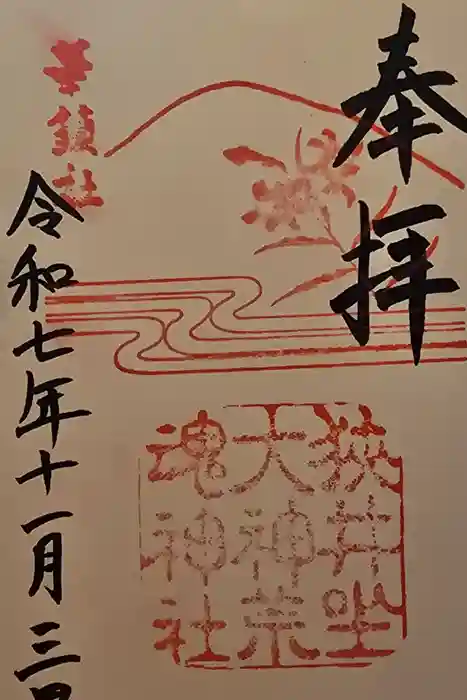 奉拝
狭井坐
大神荒
魂神社
華鎮社
令和七年十一月三日